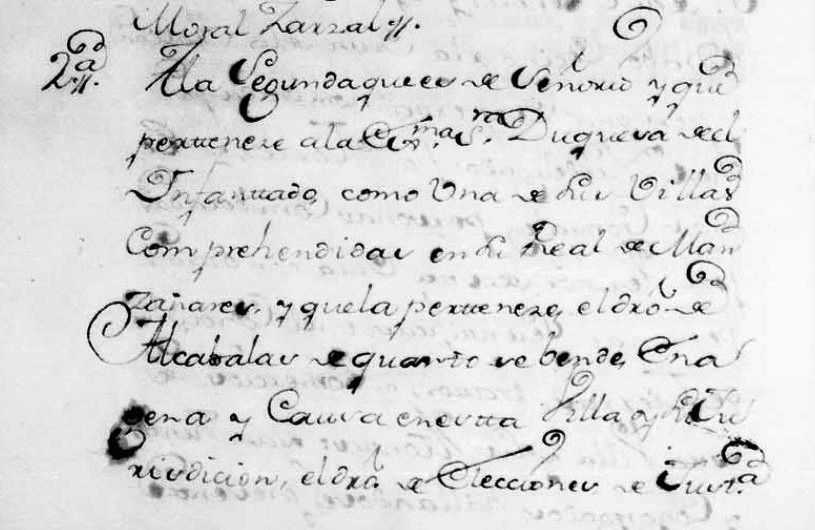 Moral Zarzal //.
2.ª //. A la Segunda que es de Señorio y que
pertenese a la Ex.ma S.ra Duquesa del
Infantado, como Una de sus Villas
Comprehendidas en su Real de Man
zanares, y que la pertenese, el dr̃o de
Alcabalas de quanto se bende, Ena
gena y Causa en estta Villa y su Ju
risdicion, el dr̃o de Elecciones de Just.ª